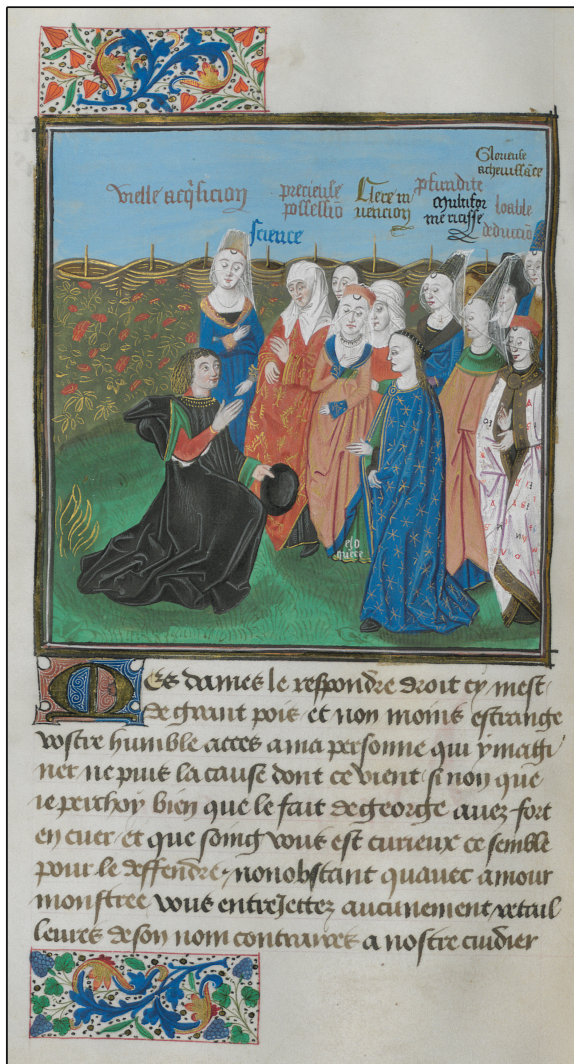 Glorieuse
achevissāce
vielle acq̄sicion
precieuse
possessiō
Clere in
uencion
pfundite
multifor
me richesse
loable
deducciō
science
elo
quēce
Mes dames le respondre droit cy mest
de grant pois et non moins estrange
vostre humble acces a ma persone qui ymagi
ner ne puis la cause dont ce vient si non que
ie perchoy bien que le fait de george auez fort
en cuer et que soing vous est curieux ce semble
pour le deffendre nonobstant quauec amour
monstree vous entreJettez aucunement retail
leures de son nom contraires a nostre cuidier